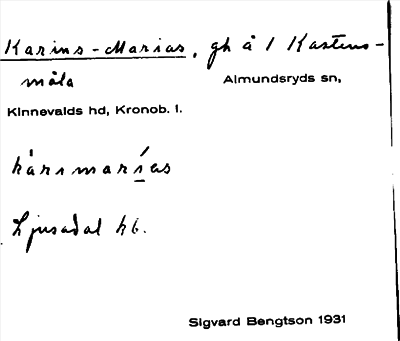 Karins-Marias, gh å 1 Kastens-
måla Almundsryds sn,
Kinnevalds hd, Kronob. l.
Ljusadal hb.
Sigvard Bengtson 1931